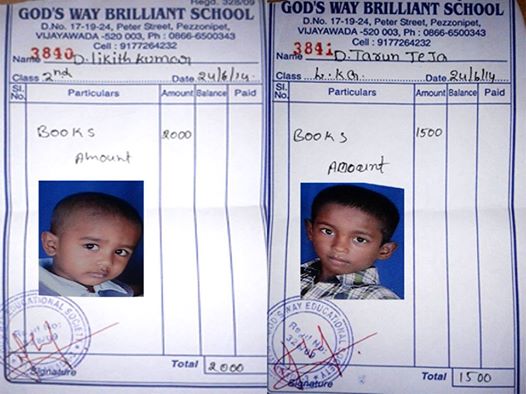 Regd. 328/09
GOD'S WAY BRILLIANT SCHOOL
D.No. 17-19-24, Peter Street, Pezzonipet,
VIJAYAWADA -520 003, Ph : 0866-6500343
Cell : 9177264232
3840
Name D. likith kumar
Class 2nd Date 24/6/14
Sl. No. Particulars Amount Balance Paid
BOOKS 2000
Amount
EDUCATIONAL SOCIETY
Regd No:
Signature
Total 2000
GOD'S WAY BRILLIANT SCHOOL
D.No. 17-19-24, Peter Street, Pezzonipet,
VIJAYAWADA -520 003, Ph : 0866-6500343
Cell : 9177264232
3841
Name D. Tarun TeJa
Class L.KG Date 24/6/14
Sl. No. Particulars Amount Balance Paid
BOOKS 1500
Amount
GOD'S WAY EDUCATIONAL SOCIETY
Regd No:
328/09
Signature
Total 1500